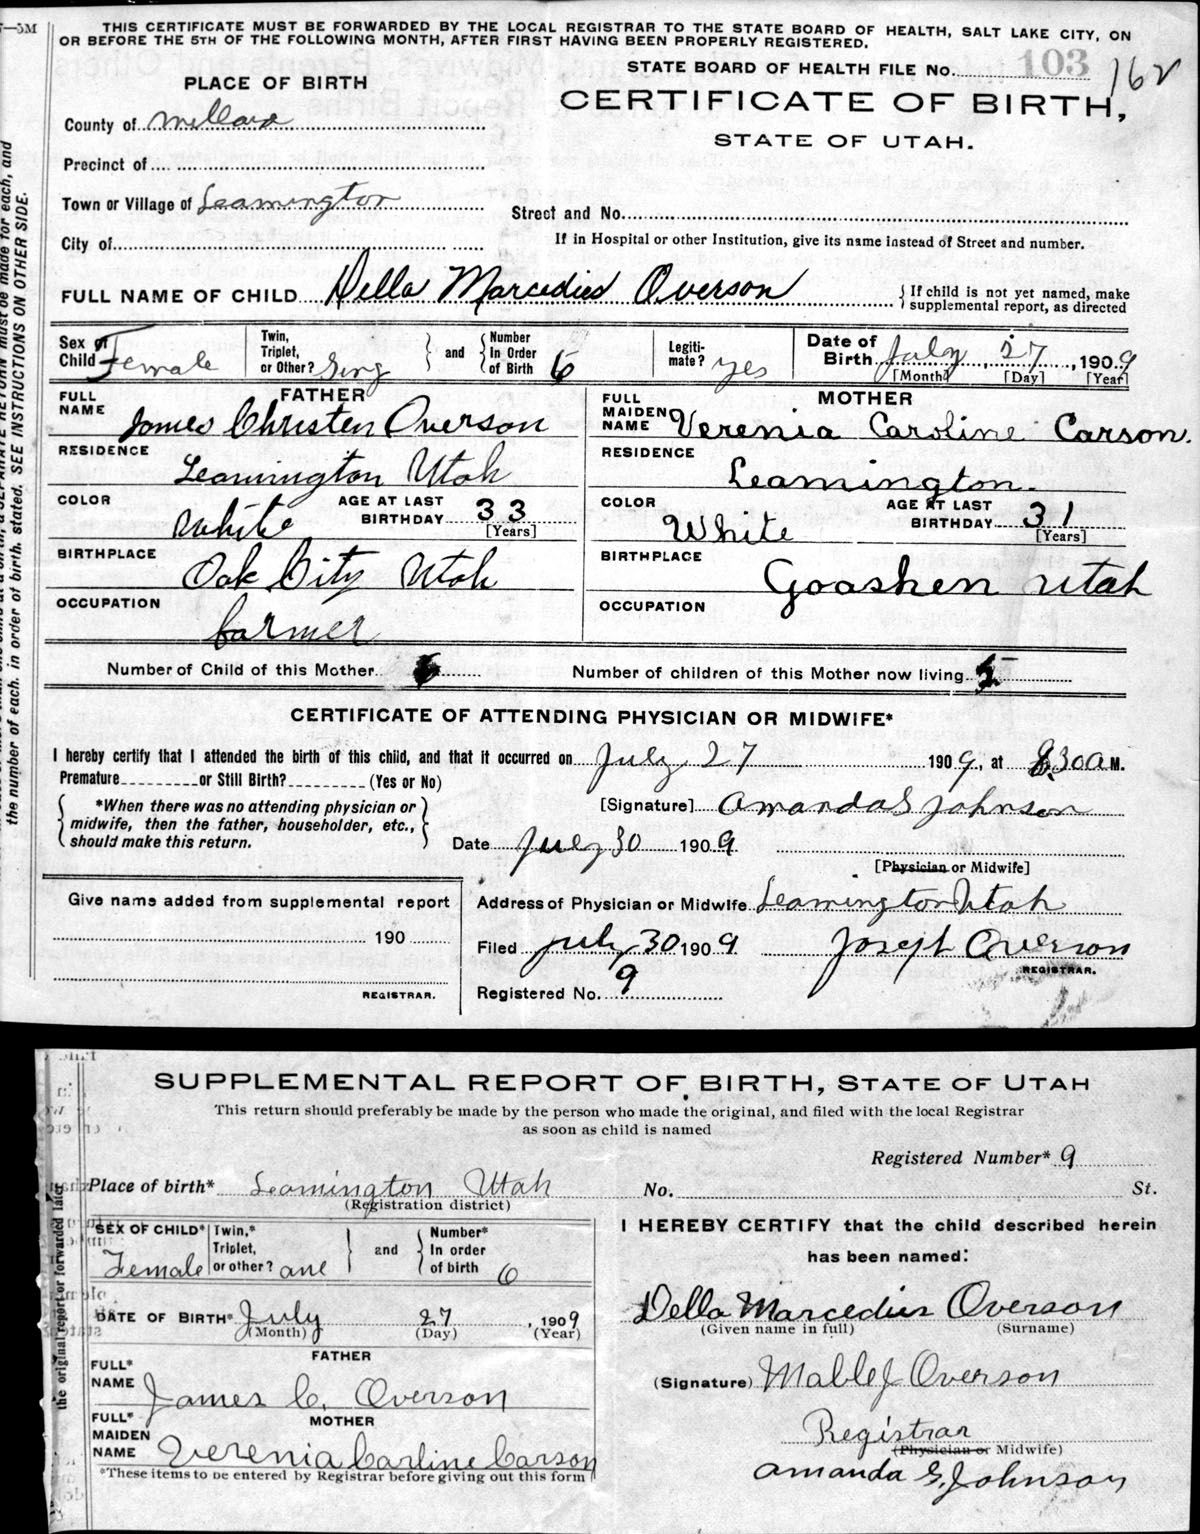 5M THIS CERTIFICATE MUST BE FORWARDED BY THE LOCAL REGISTRAR TO THE STATE BOARD OF HEALTH, SALT LAKE CITY, ON
OR BEFORE THE 5TH OF THE FOLLOWING MONTH, AFTER FIRST HAVING BEEN PROPERLY REGISTERED.
STATE BOARD OF HEALTH FILE No. 103 162
PLACE OF BIRTH
CERTIFICATE OF BIRTH,
STATE OF UTAH.
County of Millard
Precinct of
Town or Village of Leamington
Street and No.
City of
If in Hospital or other Institution, give its name instead of Street and number.
FULL NAME OF CHILD Della Marcedies Overson { If child is not yet named, make supplemental report, as directed
Sex of Child Female Twin, Triplet, or Other? Sing } and { Number In Order of Birth 6 Legiti-mate? yes Date of Birth July 27, 1909
[Month] [Day] [Year]
FATHER MOTHER
FULL NAME James Christen Overson FULL MAIDEN NAME Verenia Caroline Carson.
RESIDENCE Leamington Utah RESIDENCE Leamington.
COLOR White AGE AT LAST BIRTHDAY 33 [Years] COLOR White AGE AT LAST BIRTHDAY 31 [Years]
BIRTHPLACE Oak City Utah BIRTHPLACE Goashen Utah
OCCUPATION farmer OCCUPATION
Number of Child of this Mother 6 Number of children of this Mother now living 5
CERTIFICATE OF ATTENDING PHYSICIAN OR MIDWIFE*
I hereby certify that I attended the birth of this child, and that it occurred on July 27 1909, at 8.30 A M.
Premature or Still Birth? (Yes or No)
{ *When there was no attending physician or midwife, then the father, householder, etc., should make this return. }
[Signature] Amanda S Johnson
Date July 30 1909
[Physician or Midwife]
Give name added from supplemental report
190
REGISTRAR.
Address of Physician or Midwife Leamington Utah
Filed July 30 1909 Joseph Overson
REGISTRAR.
Registered No. 9
the number of each, in order of birth, stated. SEE INSTRUCTIONS ON OTHER SIDE.
SUPPLEMENTAL REPORT OF BIRTH, STATE OF UTAH
This return should preferably be made by the person who made the original, and filed with the local Registrar
as soon as child is named
Registered Number* 9
Place of birth* Leamington Utah No. St.
(Registration district)
SEX OF CHILD* Female Twin,* Triplet, or other? one } and { Number* In order of birth 6
DATE OF BIRTH* July 27, 1909
(Month) (Day) (Year)
FATHER
FULL* NAME James C. Overson
MOTHER
FULL* MAIDEN NAME Verenia Carline Carson
*These items to be entered by Registrar before giving out this form
I HEREBY CERTIFY that the child described herein
has been named:
Della Marcedies Overson
(Given name in full) (Surname)
(Signature) Mable J Overson
Registrar
(Physician or Midwife)
Amanda S. Johnson
the original report or forwarded later